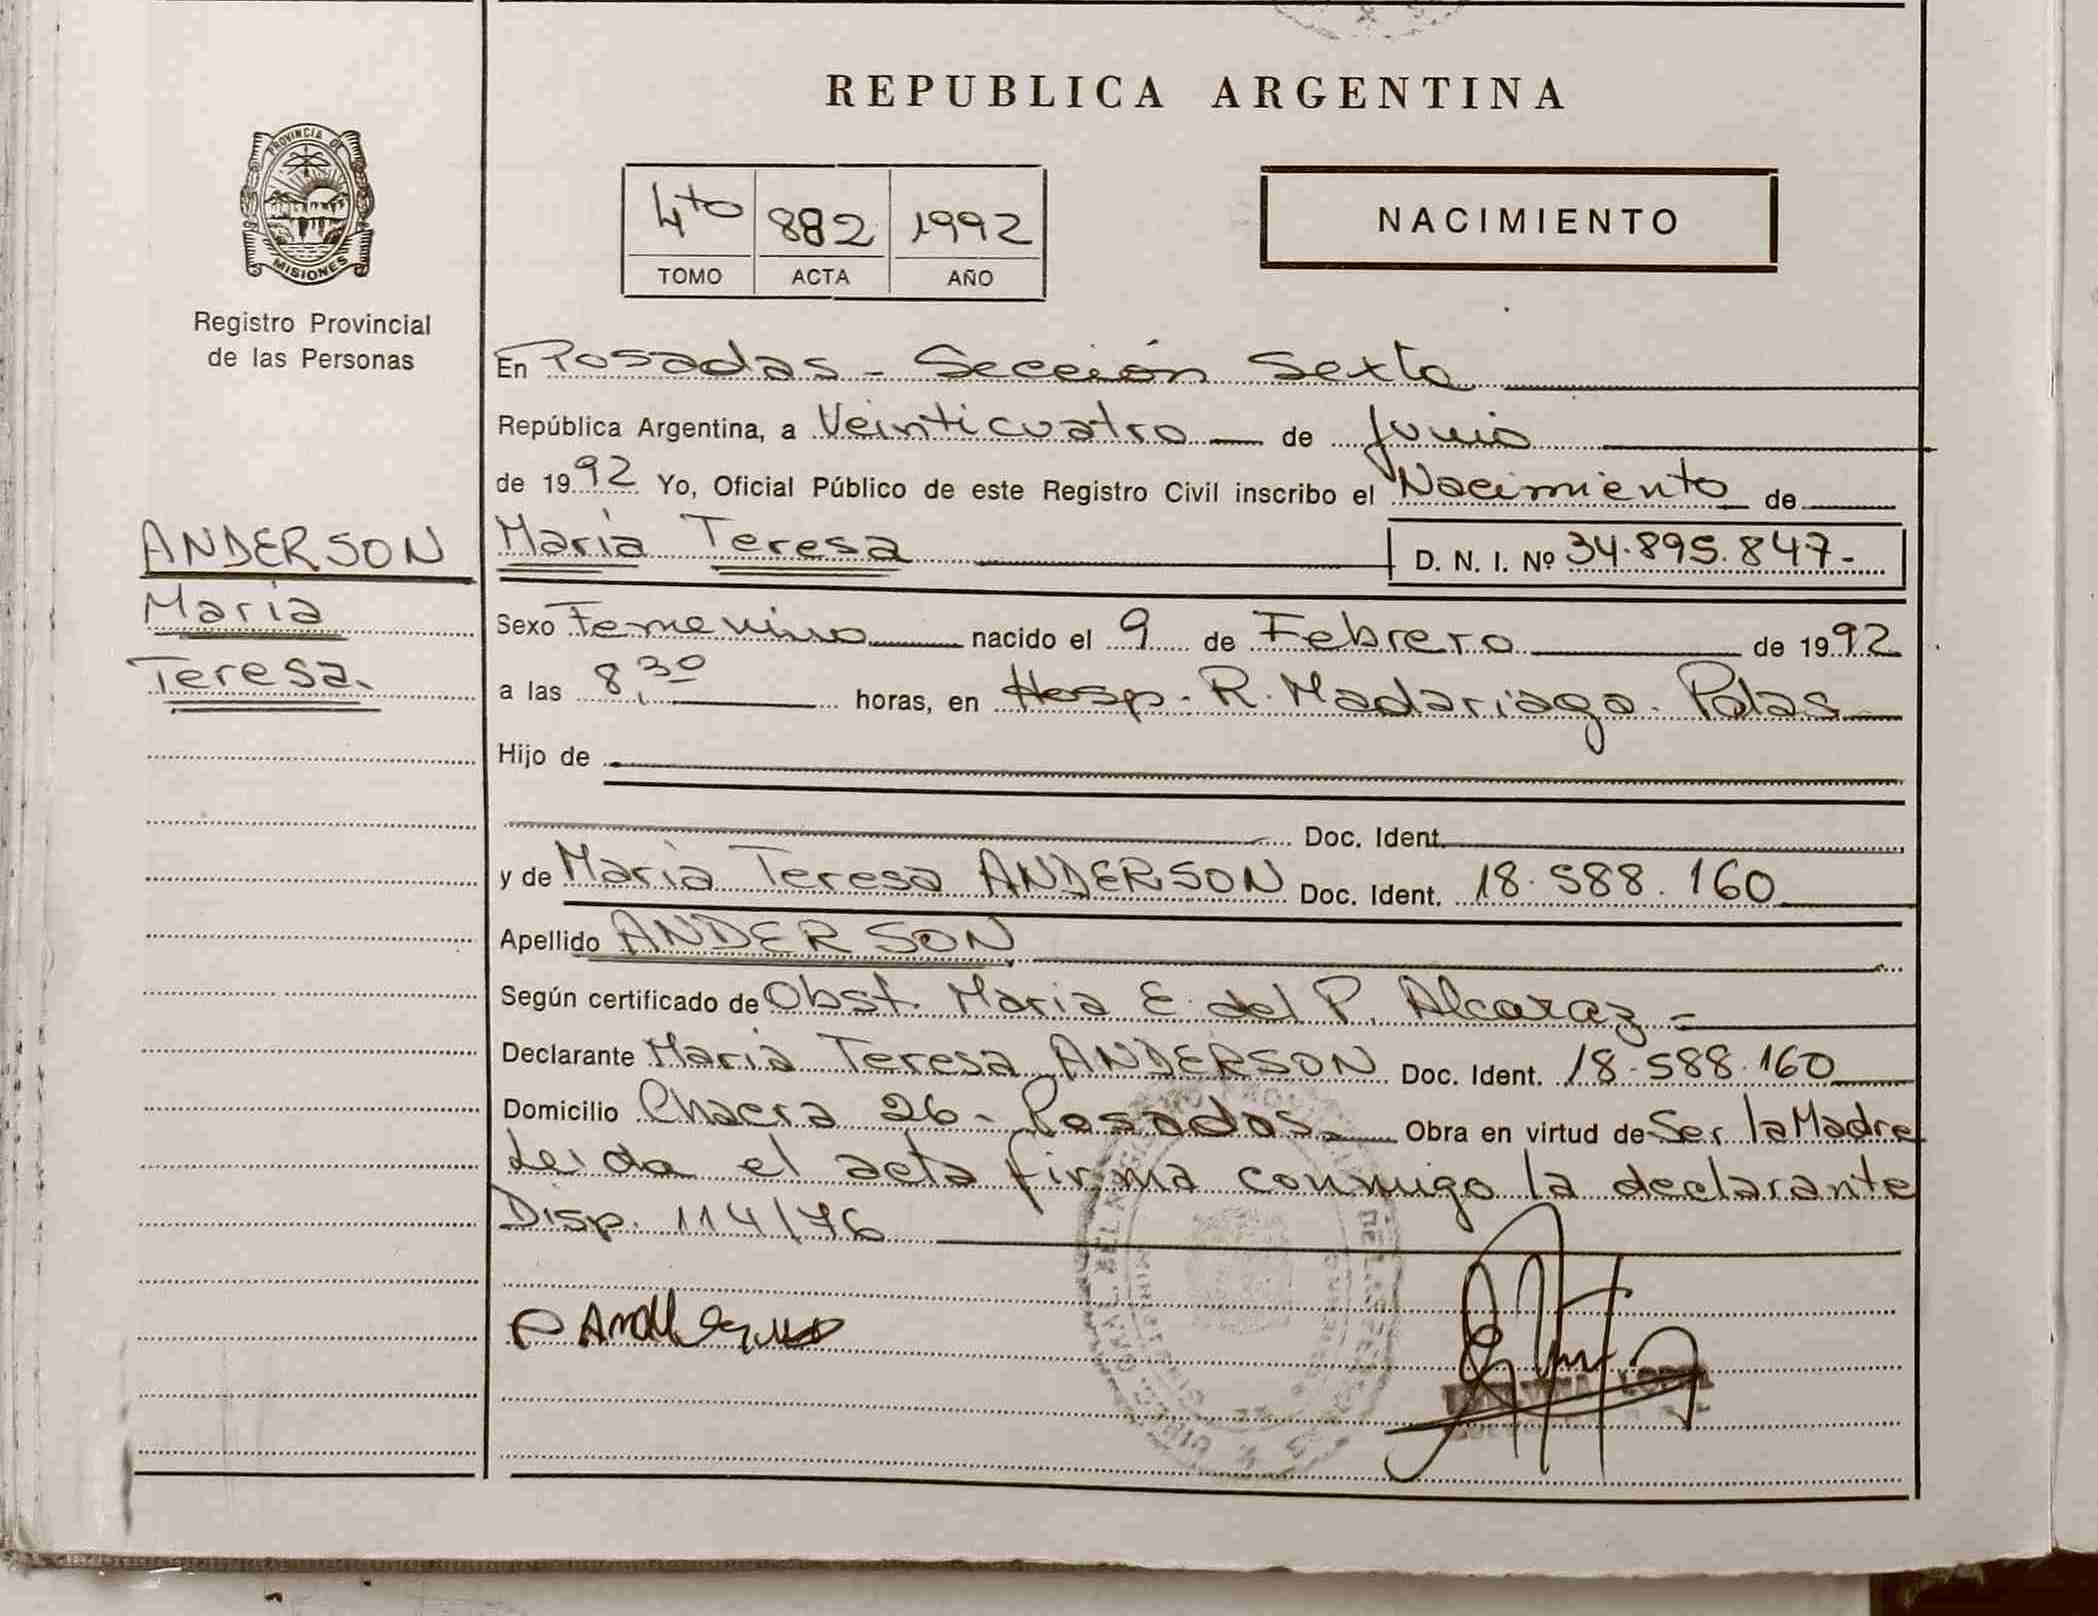 REPUBLICA ARGENTINA
PROVINCIA DE
MISIONES
Registro Provincial
de las Personas
4to 882 1992
TOMO ACTA AÑO
NACIMIENTO
En Posadas - Sección Sexta
República Argentina, a Veinticuatro de Junio
de 1992 Yo, Oficial Público de este Registro Civil inscribo el Nacimiento de
ANDERSON
María
Teresa.
María Teresa D. N. I. Nº 34.895.847-
Sexo Femenino nacido el 9 de Febrero de 1992
a las 8,30 horas, en Hosp. R. Madariaga. Pdas
Hijo de
Doc. Ident.
y de María Teresa ANDERSON Doc. Ident. 18.588.160
Apellido ANDERSON
Según certificado de Obst. María E. del P. Alcaraz -
Declarante María Teresa ANDERSON Doc. Ident. 18.588.160
Domicilio Chacra 26 - Posadas - Obra en virtud de Ser la Madre
Leida el acta firma conmigo la declarante
Disp. 114/76